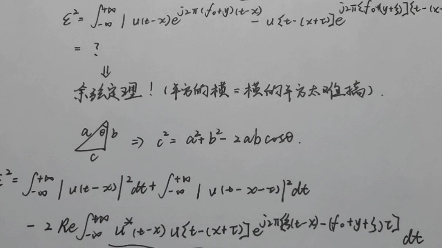 ε² = ∫_{-∞}^{+∞} | u(t-x)e^{j2π(f₀+y)(t-x)} - u{t-(x+τ)]e^{j2π[f₀+(y+ξ)]{t-(x
= ?
⇓
余弦定理!(平方的模=模的平方太难搞).
a θ b c ⇒ c² = a²+b² - 2ab cosθ.
ε² = ∫_{-∞}^{+∞} | u(t-x)|² dt + ∫_{-∞}^{+∞} | u(t-x-τ)|² dt
- 2 Re∫_{-∞}^{+∞} u*(t-x) u[t-(x+τ)] e^{j2π[ξ(t-x)-(f₀+y+ξ)τ]} dt